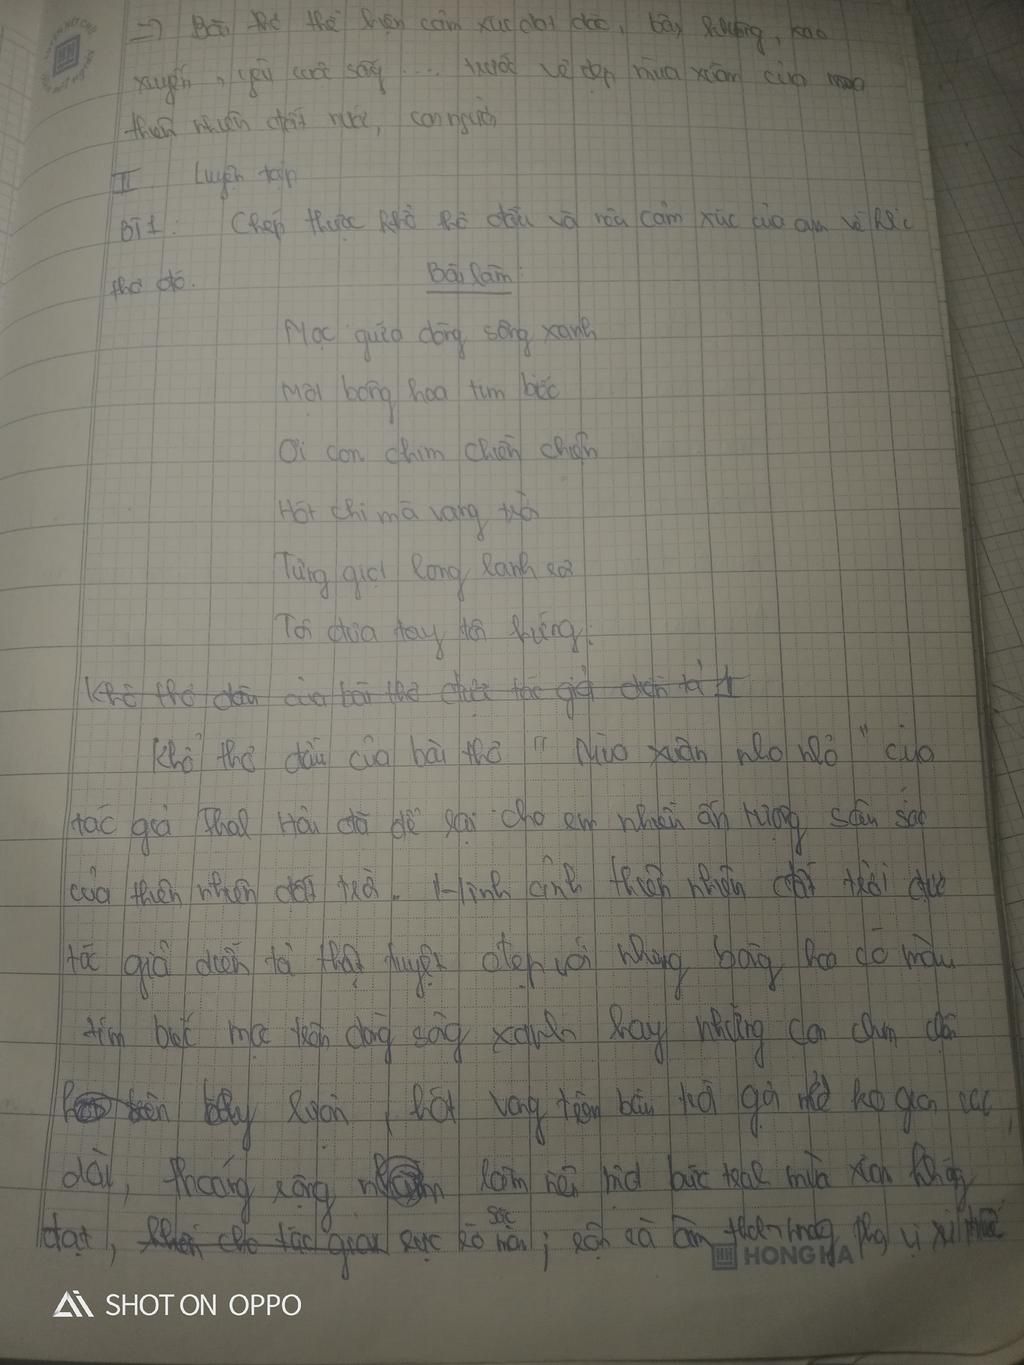 => Bài thơ thể hiện cảm xúc dạt dào, bâng khuâng, xao
xuyến, yêu cuộc sống .... trước vẻ đẹp mùa xuân của
thiên nhiên đất nước, con người
II Luyện tập
BT1: Chép thuộc khổ thơ đầu và nêu cảm xúc của em về bức
thơ đó. Bài làm:
Mọc giữa dòng sông xanh
Một bông hoa tím biếc
Ơi con chim chiền chiện
Hót chi mà vang trời
Từng giọt long lanh rơi
Tôi đưa tay tôi hứng.
Khổ thơ đầu của bài thơ được tác giả diễn tả 1
Khổ thơ đầu của bài thơ " Mùa xuân nho nhỏ " của
tác giả Thanh Hải đã để lại cho em nhiều ấn tượng sâu sắc
của thiên nhiên đất trời. Hình ảnh thiên nhiên đất trời được
tác giả diễn tả thật tuyệt đẹp với những bông hoa có màu
tím biếc mọc trên dòng sông xanh hay những con chim
bay lượn, hót vang trên bầu trời
dài, thoáng rộng làm nên một bức tranh mùa xuân
đạt, cho tác giả rực rỡ sắc màu; rộn rã âm thanh
HONG HA
SHOT ON OPPO